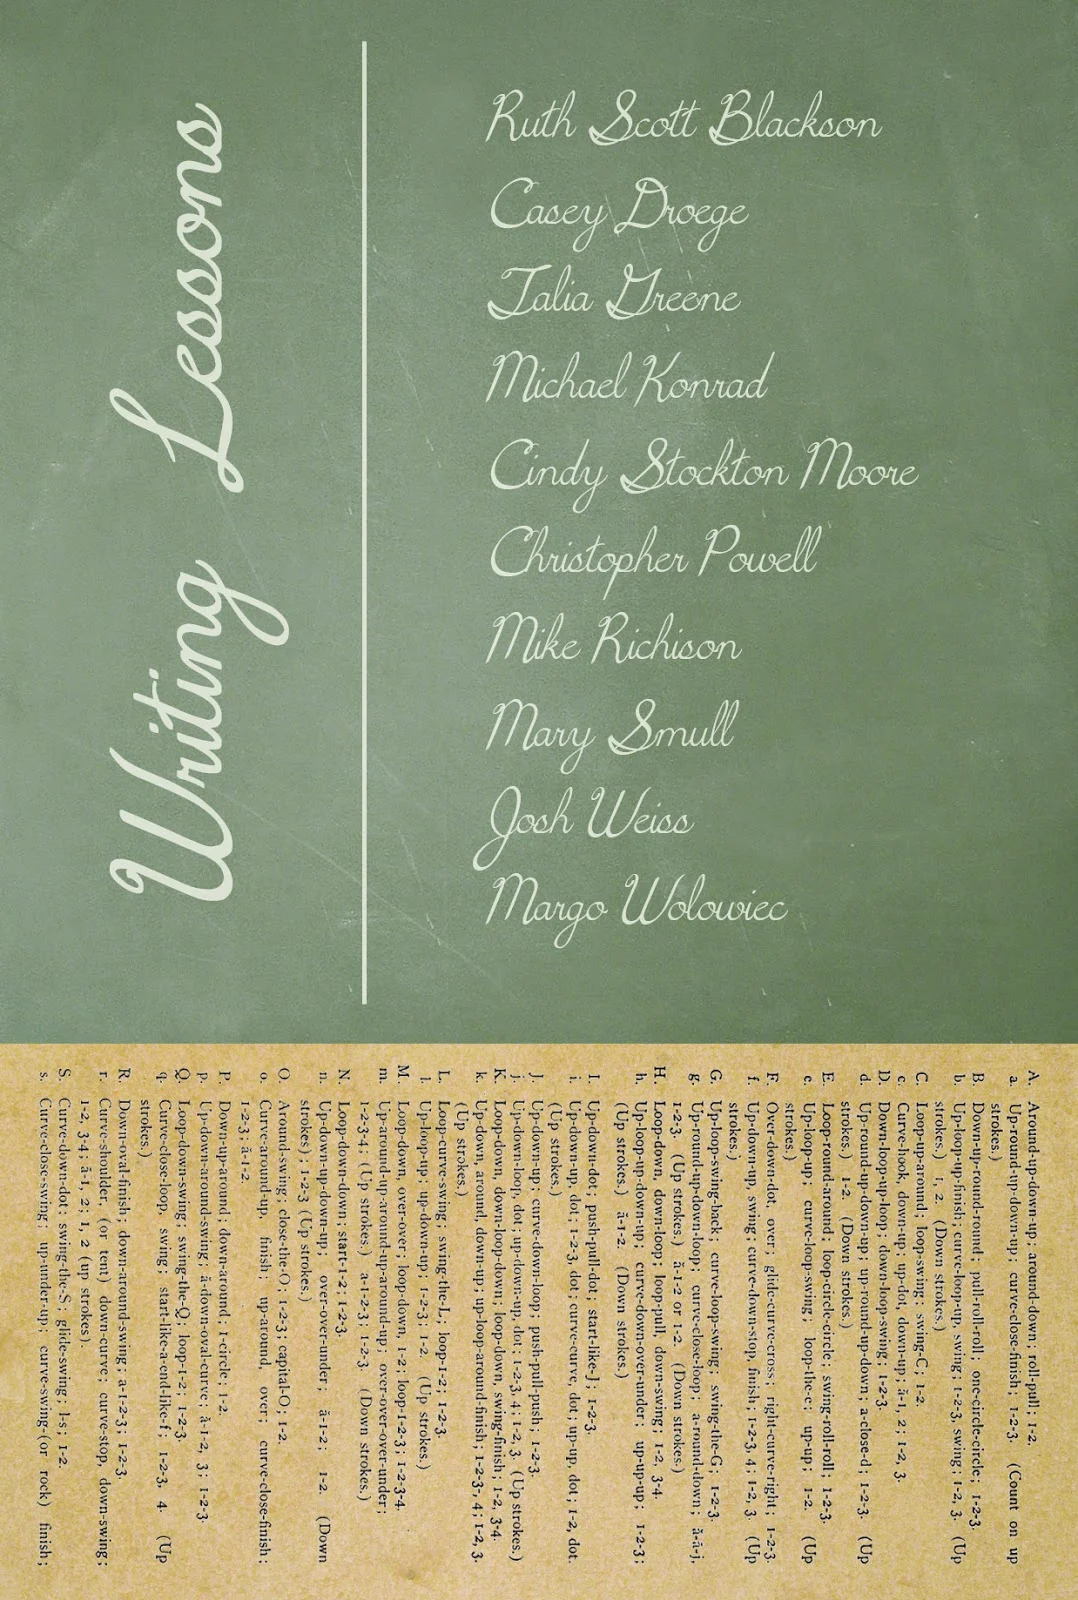 Writing Lessons
Ruth Scott Blackson
Casey Droege
Talia Greene
Michael Konrad
Cindy Stockton Moore
Christopher Powell
Mike Richison
Mary Smull
Josh Weiss
Margo Wolowiec
A. Around-up-down-up; around-down; roll-pull; 1-2.
a. Up-round-up-down-up; curve-close-finish; 1-2-3. (Count on up
strokes.)
B. Down-up-round-round; pull-roll-roll; one-circle-circle; 1-2-3.
b. Up-loop-up-finish; curve-loop-up, swing; 1-2-3, swing; 1-2, 3. (Up
strokes.) 1, 2. (Down strokes.)
C. Loop-up-around; loop-swing; swing-C; 1-2.
c. Curve-hook, down-up; up-dot, down-up; ā-1, 2; 1-2, 3.
D. Down-loop-up-loop; down-loop-swing; 1-2-3.
d. Up-round-up-down-up; up-round-up-down; a-close-d; 1-2-3. (Up
strokes.) 1-2. (Down strokes.)
E. Loop-round-around; loop-circle-circle; swing-roll-roll; 1-2-3.
e. Up-loop-up; curve-loop-swing; loop-the-e; up-up; 1-2. (Up
strokes.)
F. Over-down-dot, over; glide-curve-cross; right-curve-right; 1-2-3.
f. Up-down-up, swing; curve-down-stop, finish; 1-2-3, 4; 1-2, 3. (Up
strokes.)
G. Up-loop-swing-back; curve-loop-swing; swing-the-G; 1-2-3.
g. Up-round-up-down-loop; curve-close-loop; a-round-down; ā-ā-j,
1-2-3. (Up strokes.) ā-1-2 or 1-2. (Down strokes.)
H. Loop-down, down-loop; loop-pull, down-swing; 1-2, 3-4.
h. Up-loop-down-over-up; curve-down-over-under; up-up-up; 1-2-3;
(Up strokes.) ā-1-2. (Down strokes.)
I. Up-down-dot; push-pull-dot; start-like-J; 1-2-3.
i. Up-down-up, dot; 1-2-3, dot; curve-curve, dot; up-up, dot; 1-2, dot.
(Up strokes.)
J. Up-down-up; curve-down-loop; push-pull-push; 1-2-3.
j. Up-down-loop, dot; up-down-up, dot; 1-2-3, 4; 1-2, 3. (Up strokes.)
K. Loop-down, down-loop-down; loop-down, swing-finish; 1-2, 3-4.
k. Up-down, around, down-up; up-loop-around-finish; 1-2-3-, 4; 1-2, 3.
(Up strokes.)
L. Loop-curve-swing; swing-the-L; loop-1-2; 1-2-3.
l. Up-loop-up; up-down-up; 1-2-3; 1-2. (Up strokes.)
M. Loop-down, over-over; loop-down, 1-2; loop-1-2-3; 1-2-3-4.
m. Up-around-up-around-up; around-up-down; over-over-over-under;
1-2-3-4; (Up strokes.) a-1-2-3; 1-2-3 (Down strokes.)
N. Loop-down-down; start-1-2; 1-2-3.
n. Up-down-up-down-up; over-over-under; ā-1-2; 1-2. (Down
strokes); 1-2-3 (Up strokes.)
O. Around-swing; close-the-O; 1-2-3; capital-O; 1-2.
o. Curve-around-up, finish; up-around, over; curve-close-finish;
1-2-3; ā-1-2.
P. Down-up-around; down-around; 1-circle; 1-2.
p. Up-down-around-swing; ā-down-oval-curve; ā-1-2, 3; 1-2-3.
Q. Loop-down-swing; swing-the-Q; loop-1-2; 1-2-3.
q. Curve-close-loop, swing; start-like-a-end-like-f; 1-2-3, 4. (Up
strokes.)
R. Down-oval-finish; down-around-swing; a-1-2-3; 1-2-3.
r. Curve-shoulder, (or tent) down-curve; curve-stop, down-swing;
1-2, 3-4; ā-1, 2; 1, 2 (up strokes).
S. Curve-down-dot; swing-the-S; glide-swing; 1-s; 1-2.
s. Curve-close-swing; up-under-up; curve-swing-(or rock) finish;